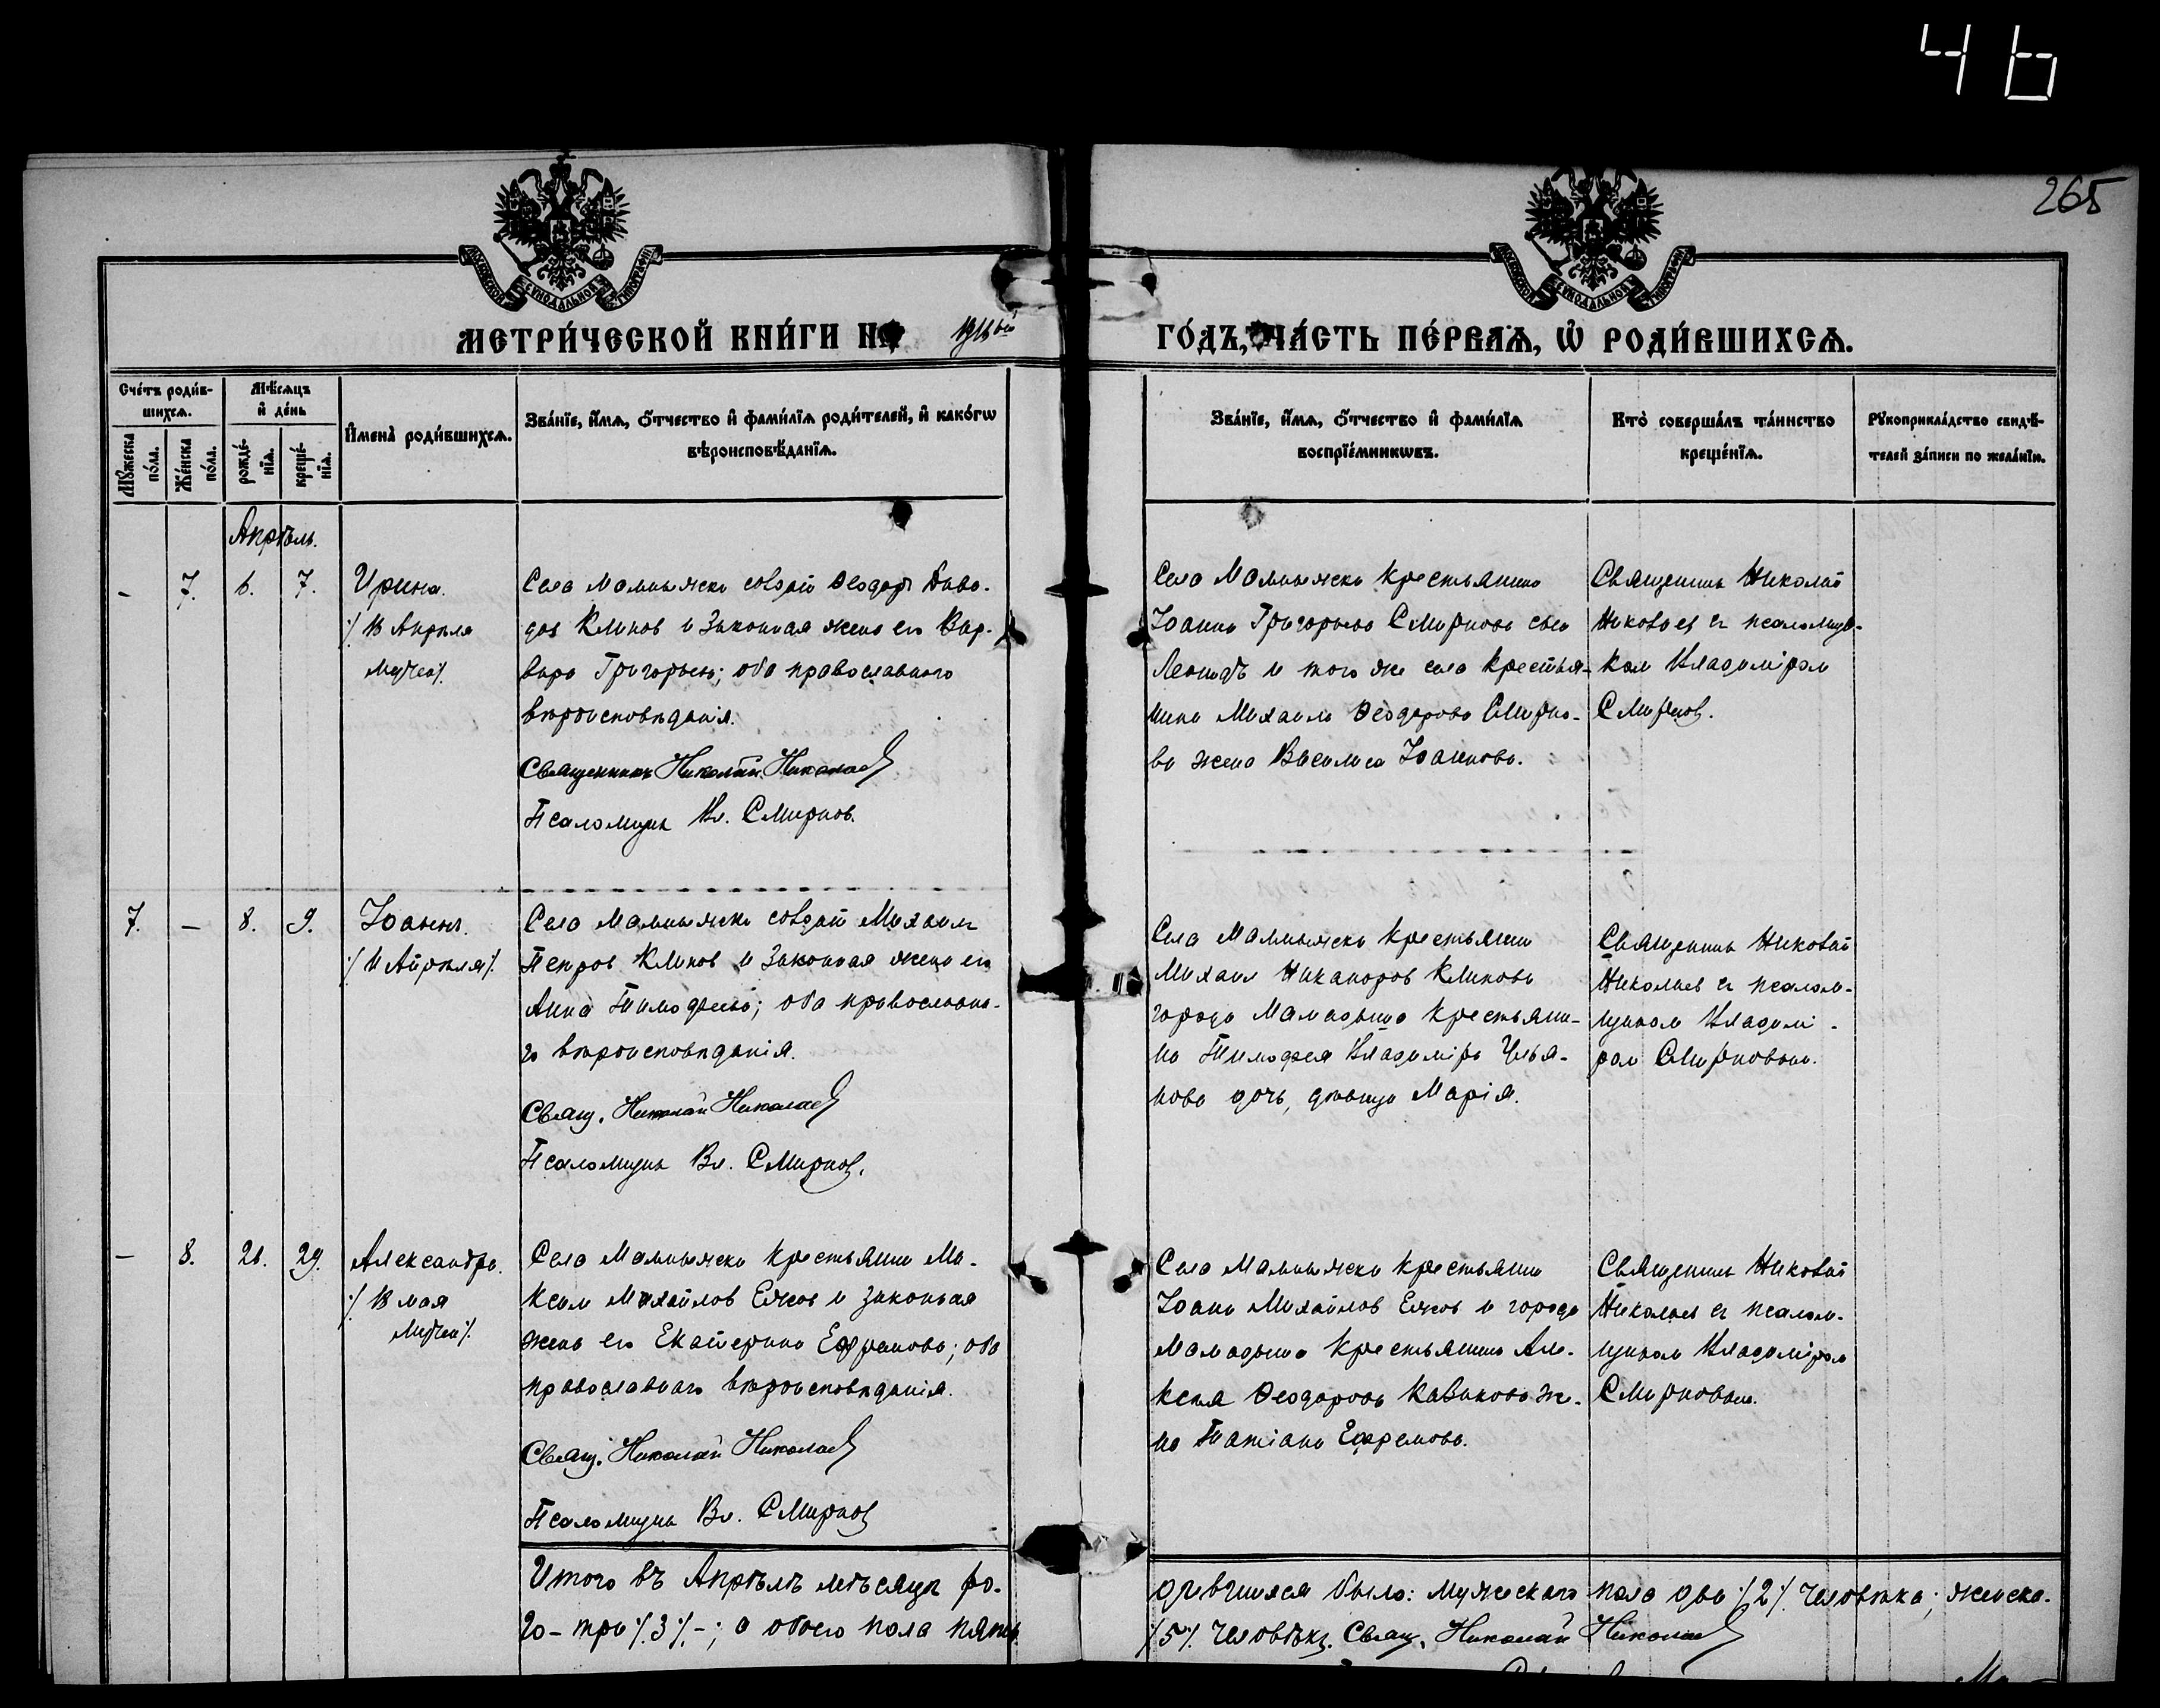 46
265
МЕТРИ́ЧЕСКОЙ КНИ́ГИ НА 1916ый ГО́ДЪ, ЧА́СТЬ ПЕ́РВАѦ, Ѡ҆ РОДИ́ВШИХСѦ.
Сче́тъ роди́в-
шихсѧ.
Мꙋ́жеска по́ла.
Же́нска по́ла.
Мѣ́сѧцъ
и҆ де́нь
рожде́-
нїѧ.
креще́-
нїѧ.
И҆мена̀ роди́вшихсѧ.
Зва́нїе, и҆́мѧ, ѻ҆́тчество и҆ фами́лїѧ роди́телей, и҆ како́гѡ
вѣроисповѣ́данїѧ.
Зва́нїе, и҆́мѧ, ѻ҆́тчество и҆ фами́лїѧ
воспрїе́мникѡвъ.
Кто̀ соверша́лъ та́инство
креще́нїѧ.
Рꙋкоприкла́дство свидѣ́-
телей за́писи по жела́нїю.
Апрѣль.
- 7. 6. 7. Ирина.
Села Мамыжски Ѳеодоръ Давы-
дов Климов и законная жена его Вар-
вара Григорьева; оба православного
вѣроисповѣданія.
Священникъ Николай Николаев
Псаломщик Вл. Смирнов.
Крестьянина
Іоанна Григорьева Смирнова сын
Леонидъ и того же села крестья-
нина Михаила Ѳеодорова Смирно-
ва жена Василиса Іоаннова.
Священник Николай
Николаев съ псаломщи-
ком Владиміром
Смирнов.
7. - 8. 9. Іоаннъ.
/11 Апрѣля/.
Михаил
Петров Климов и законная жена его
Анна Тимофеева; оба православна-
го вѣроисповѣданія.
Свящ. Николай Николаев
Псаломщик Вл. Смирнов.
крестьянин
Михаил Никаноров Климов
города Мамадыша крестьяни-
на Тимофея Владиміра Улья-
нова дочь, дѣвица Марія.
Священник Николай
Николаев съ псалом-
щиком Владимі-
ром Смирновым.
- 8. 29. Александра.
крестьянин Ма-
ксим Михайлов Ежов и законная
жена его Екатерина Ефремова; оба
православнаго вѣроисповѣданія.
Свящ. Николай Николаев
Псаломщик Вл. Смирнов
крестьянин
Іоанн Михайлов Ежов и города
Мамадыша крестьянина Але-
ксея Ѳеодорова же-
на Татіана Ефремова.
Священник Николай
Николаев съ псалом-
щиком Владиміром
Смирновым.
Итого въ Апрѣлѣ мѣсяцѣ ро-
дившихся было: мужеского пола два /2/ человѣка; женска-
го - три /3/ -; а обоего пола пять
/5/ человѣкъ. Свящ. Николай Николаев